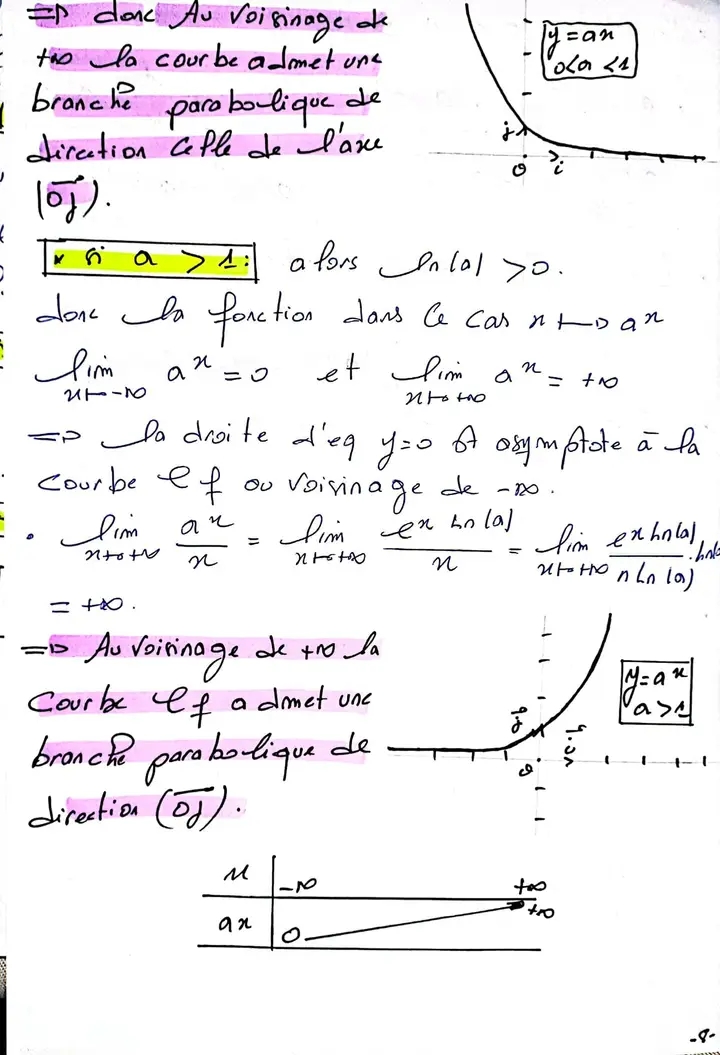 => donc Au voisinage de
+∞ la courbe admet une
branche parabolique de
direction celle de l'axe
(O𝑗⃗).
y = aˣ
0<a<1
j
o
i
* si a > 1: alors ln(a) > 0.
donc la fonction dans ce cas x ↦ aˣ
lim aˣ = 0 et lim aˣ = +∞
x→-∞ x→+∞
=> la droite d'eq y=0 est asymptote à la
courbe Cf au voisinage de -∞.
• lim aˣ/x = lim e^(x Ln(a))/x = lim e^(x Ln(a))/(x Ln(a)) . Ln(a)
x→+∞ x→+∞ x→+∞
= +∞.
=> Au voisinage de +∞ la
Courbe Cf admet une
branche parabolique de
direction (O𝑗⃗).
y = aˣ
a > 1
j
i
o
x -∞ +∞
aˣ 0 +∞
-8-